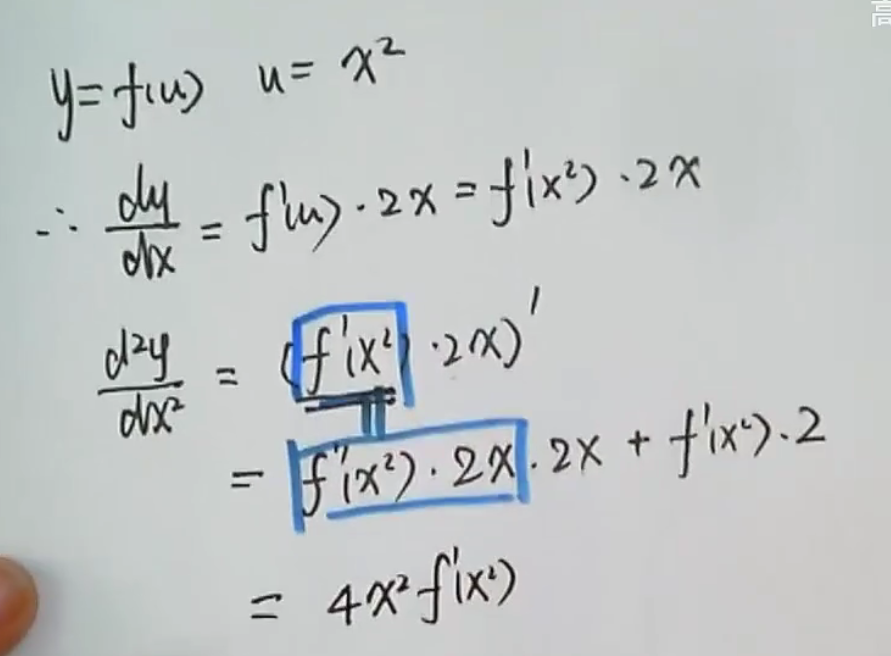 高
y=f(u) u=x²
∴ dy/dx = f'(u)·2x = f'(x²)·2x
d²y/dx² = (f'(x²)·2x)'
= f''(x²)·2x·2x + f'(x²)·2
= 4x²f'(x²)